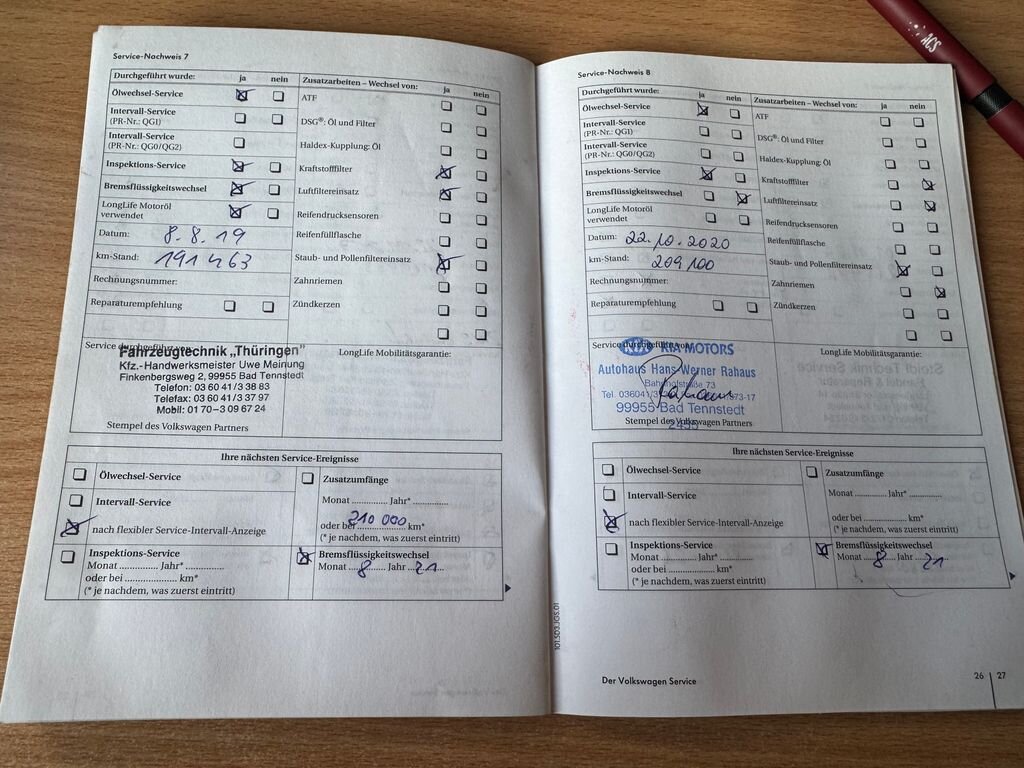 ACS
Service-Nachweis 7
Durchgeführt wurde: ja nein Zusatzarbeiten – Wechsel von: ja nein
Ölwechsel-Service ATF
Intervall-Service
(PR-Nr.: QG1) DSG®: Öl und Filter
Intervall-Service
(PR-Nr.: QG0/QG2) Haldex-Kupplung: Öl
Inspektions-Service Kraftstofffilter
Bremsflüssigkeitswechsel Luftfiltereinsatz
LongLife Motoröl
verwendet Reifendrucksensoren
Datum: 8.8.19 Reifenfüllflasche
km-Stand: 191 463 Staub- und Pollenfiltereinsatz
Rechnungsnummer: Zahnriemen
Reparaturempfehlung Zündkerzen
Service durchgeführt von: LongLife Mobilitätsgarantie:
Fahrzeugtechnik „Thüringen"
Kfz.-Handwerksmeister Uwe Meinung
Finkenbergsweg 2, 99955 Bad Tennstedt
Telefon: 03 60 41/3 38 83
Telefax: 03 60 41/3 37 97
Mobil: 01 70–3 09 67 24
Stempel des Volkswagen Partners
Ihre nächsten Service-Ereignisse
Ölwechsel-Service Zusatzumfänge
Intervall-Service Monat .............. Jahr* ..............
nach flexibler Service-Intervall-Anzeige oder bei 210 000 km*
(* je nachdem, was zuerst eintritt)
Inspektions-Service Bremsflüssigkeitswechsel
Monat .............. Jahr* .............. Monat 8 Jahr 21
oder bei .................... km*
(* je nachdem, was zuerst eintritt)
Service-Nachweis 8
Durchgeführt wurde: ja nein Zusatzarbeiten – Wechsel von: ja nein
Ölwechsel-Service ATF
Intervall-Service
(PR-Nr.: QG1) DSG®: Öl und Filter
Intervall-Service
(PR-Nr.: QG0/QG2) Haldex-Kupplung: Öl
Inspektions-Service Kraftstofffilter
Bremsflüssigkeitswechsel Luftfiltereinsatz
LongLife Motoröl
verwendet Reifendrucksensoren
Datum: 22.10.2020 Reifenfüllflasche
km-Stand: 209 100 Staub- und Pollenfiltereinsatz
Rechnungsnummer: Zahnriemen
Reparaturempfehlung Zündkerzen
Service durchgeführt von: LongLife Mobilitätsgarantie:
KIA KIA MOTORS
Autohaus Hans-Werner Rahaus
Bahnhofstraße 73
Tel. 036041/
99955 Bad Tennstedt
Stempel des Volkswagen Partners
Ihre nächsten Service-Ereignisse
Ölwechsel-Service Zusatzumfänge
Intervall-Service Monat .............. Jahr* ..............
nach flexibler Service-Intervall-Anzeige oder bei .................... km*
(* je nachdem, was zuerst eintritt)
Inspektions-Service Bremsflüssigkeitswechsel
Monat .............. Jahr* .............. Monat 8 Jahr 21
oder bei .................... km*
(* je nachdem, was zuerst eintritt)
101.5D3.JGS.01
Der Volkswagen Service 26 27